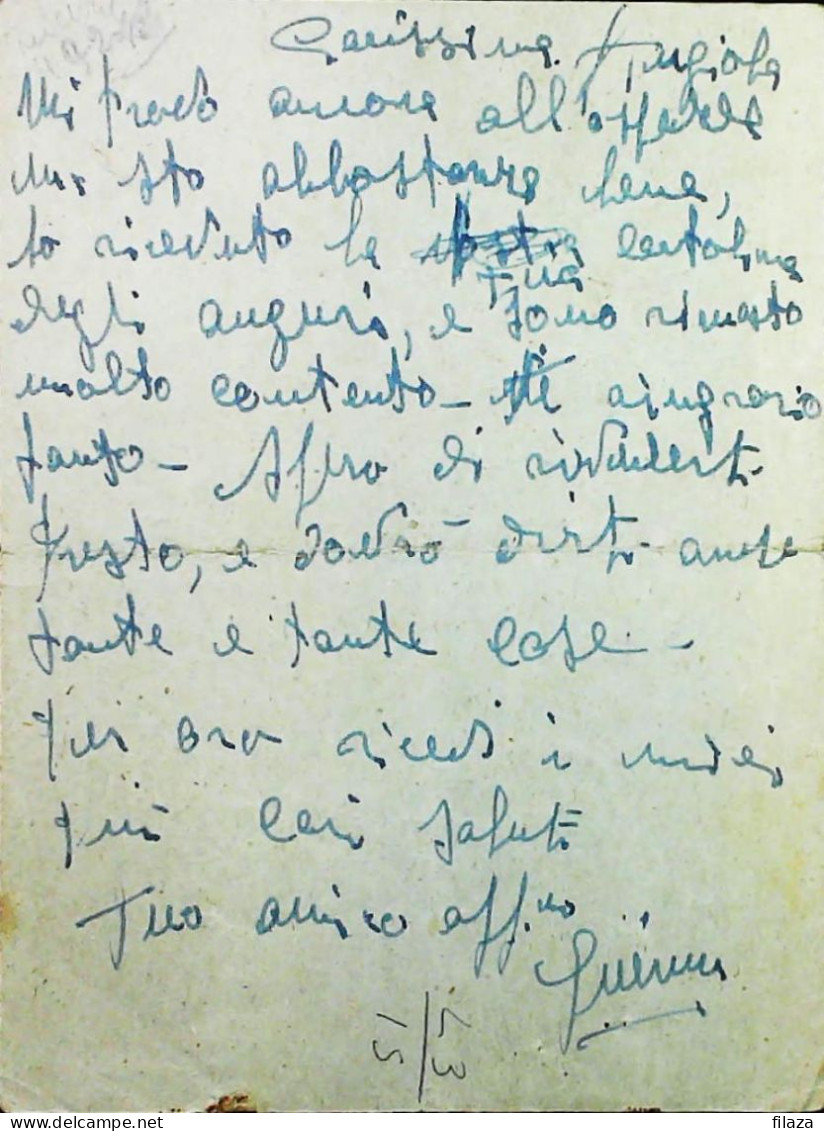 Carissima Angiola
Mi trovo ancora all'ospedale
ma sto abbastanza bene,
ho ricevuto la tua cartolina
degli auguri, e sono rimasto
molto contento - ti ringrazio
tanto - Spero di rivederti
presto, e dovrò dirti anche
tante e tante cose -
Per ora ricevi i miei
più cari saluti
Tuo amico aff.mo
filaza